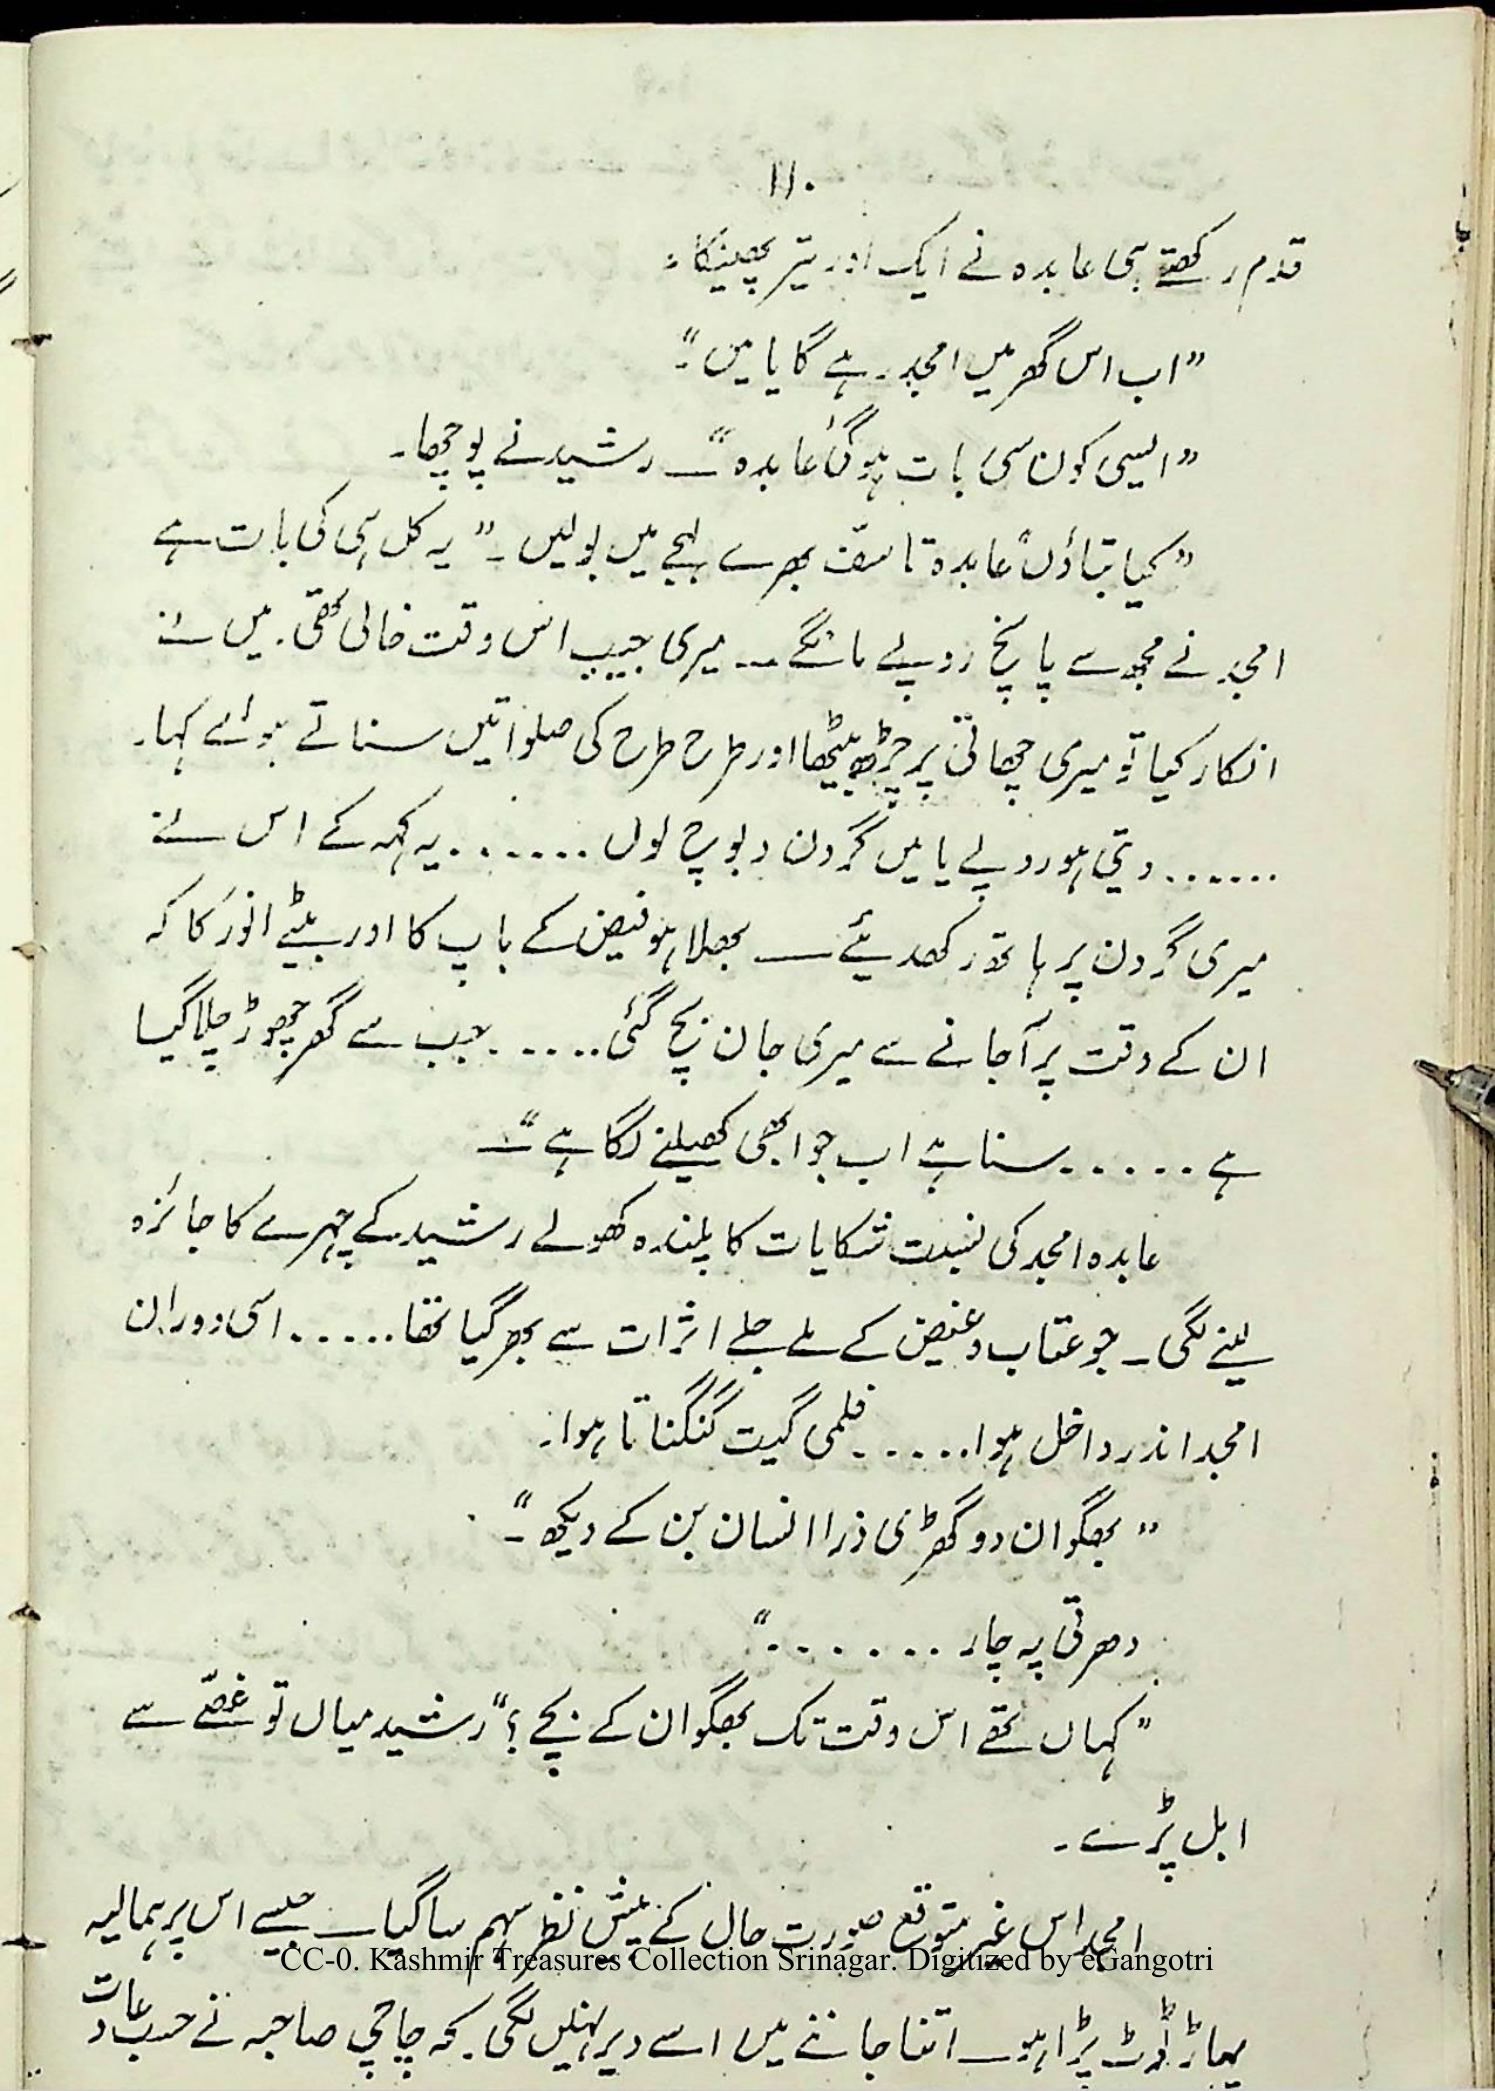 ۱۱۰
قدم رکھتے ہی عابدہ نے ایک اور تیر پھینکا۔
”اب اس گھر میں امجد رہے گا یا میں“۔
”ایسی کون سی بات ہوگئی عابدہ“ــ رشید نے پوچھا۔
”کیا بتاؤں“ عابدہ تاسّف بھرے لہجے میں بولیں۔ ”یہ کل ہی کی بات ہے
امجد نے مجھ سے پانچ روپے مانگے ــ میری جیب اس وقت خالی تھی۔ میں نے
انکار کیا تو میری چھاتی پر چڑھ بیٹھا اور طرح طرح کی صلواتیں سناتے ہوئے کہا۔
...... دیتی ہو روپے یا میں گردن دبوچ لوں ...... یہ کہہ کے اس نے
میری گردن پر ہاتھ رکھدیئے ــ بھلا ہو فیض کے باپ کا اور بیٹے انور کا کہ
ان کے وقت پر آجانے سے میری جان بچ گئی ..... جب سے گھر چھوڑ چلا گیا
ہے ..... سنا ہے اب جوا بھی کھیلنے لگا ہے“ــ
عابدہ امجد کی نسبت شکایات کا پلندہ کھولے رشید کے چہرے کا جائزہ
لینے لگی۔ جو عتاب و غیض کے ملے جلے اثرات سے بھر گیا تھا ..... اسی دوران
امجد اندر داخل ہوا ..... فلمی گیت گنگناتا ہوا۔
”بھگوان دو گھڑی ذرا انسان بن کے دیکھ“۔
دھرتی پہ چار ......“
”کہاں تھے اس وقت تک بھگوان کے بچے؟“ رشید میاں تو غصّے سے
ابل پڑے۔
امجد اس غیر متوقع صورت حال کے پیش نظر سہم سا گیا ــ جیسے اس پر ہمالیہ
CC-0. Kashmir Treasures Collection Srinagar. Digitized by eGangotri
پہاڑ ٹوٹ پڑا ہو ــ اتنا جاننے میں اسے دیر نہیں لگی۔ کہ چاچی صاحبہ نے حسب عادت